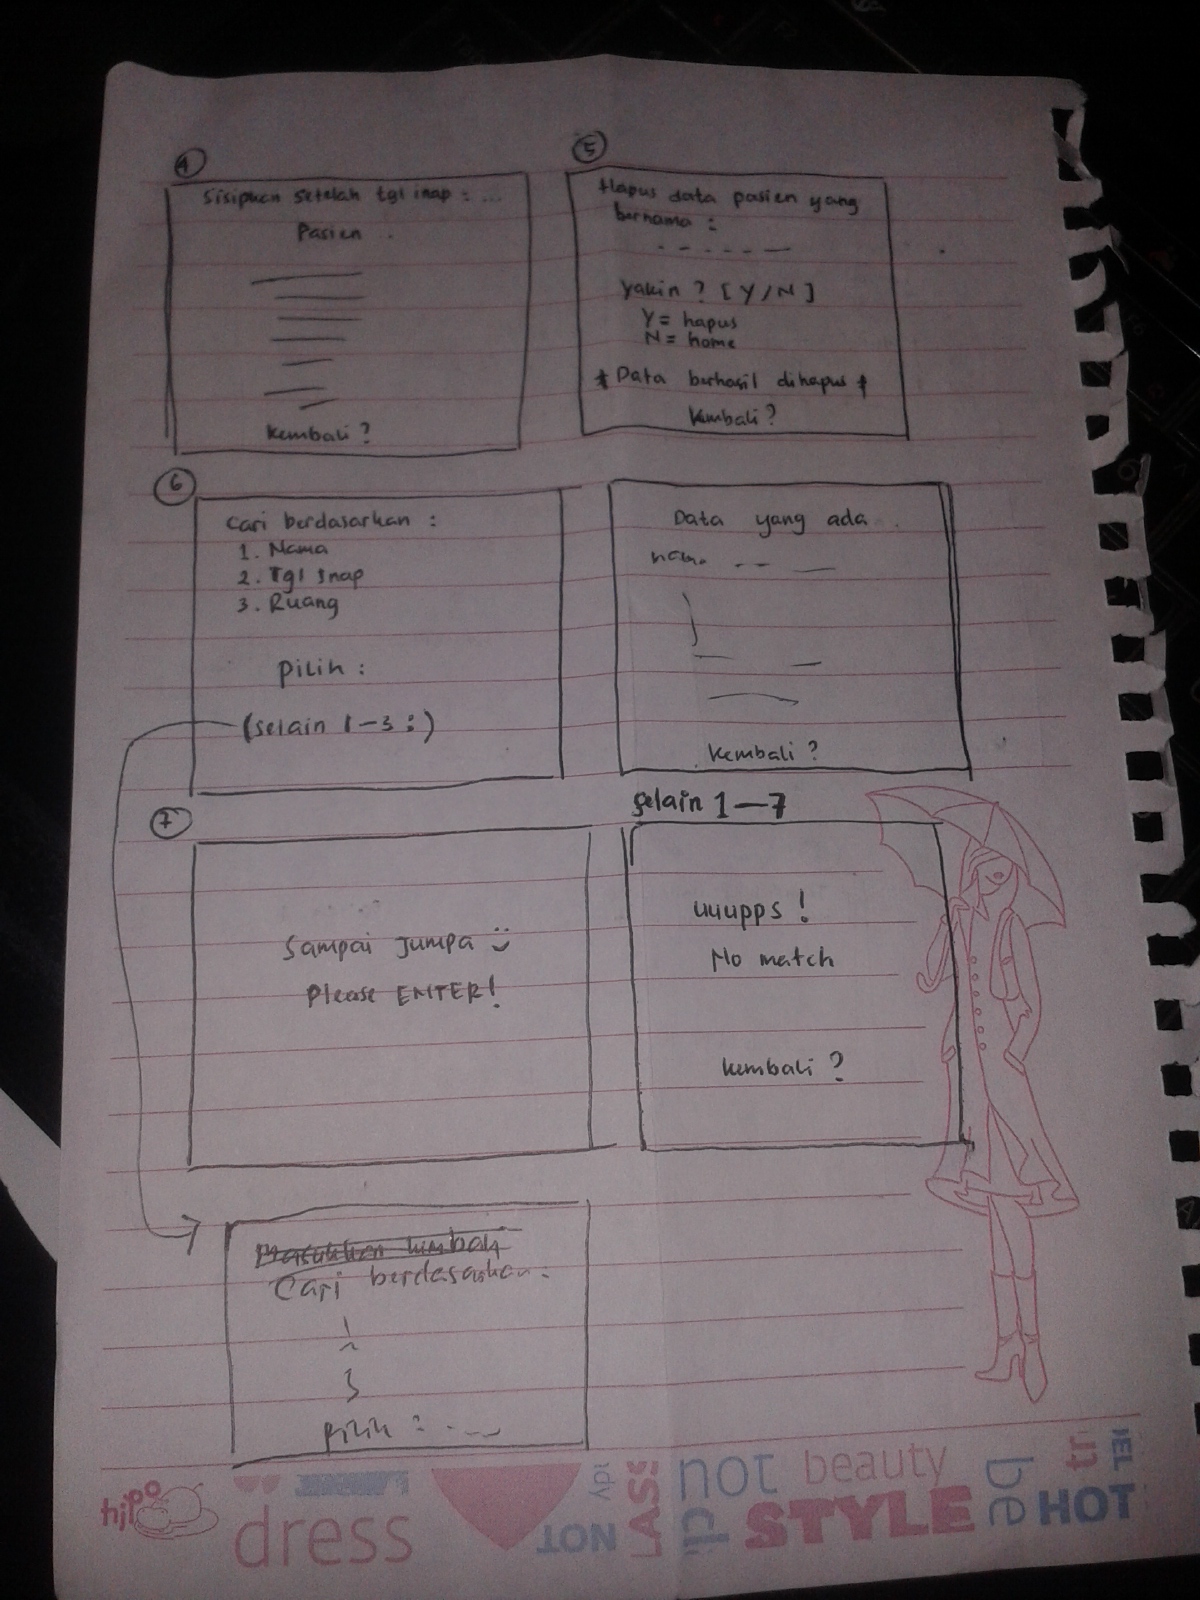 4
Sisipkan setelah tgl inap : ...
Pasien
Kembali ?
5
Hapus data pasien yang
bernama :
Yakin ? [ Y / N ]
Y = hapus
N = home
* Data berhasil dihapus *
Kembali ?
6
Cari berdasarkan :
1. Nama
2. Tgl Inap
3. Ruang
Pilih :
(selain 1-3 :)
Data yang ada
nama
Kembali ?
7
Sampai Jumpa
Please ENTER!
selain 1-7
uuupps !
No match
Kembali ?
Masukkan kembali
Cari berdasarkan :
1
2
3
Pilih : ...
hipo
dress
NOT
not
beauty
STYLE
be
HOT